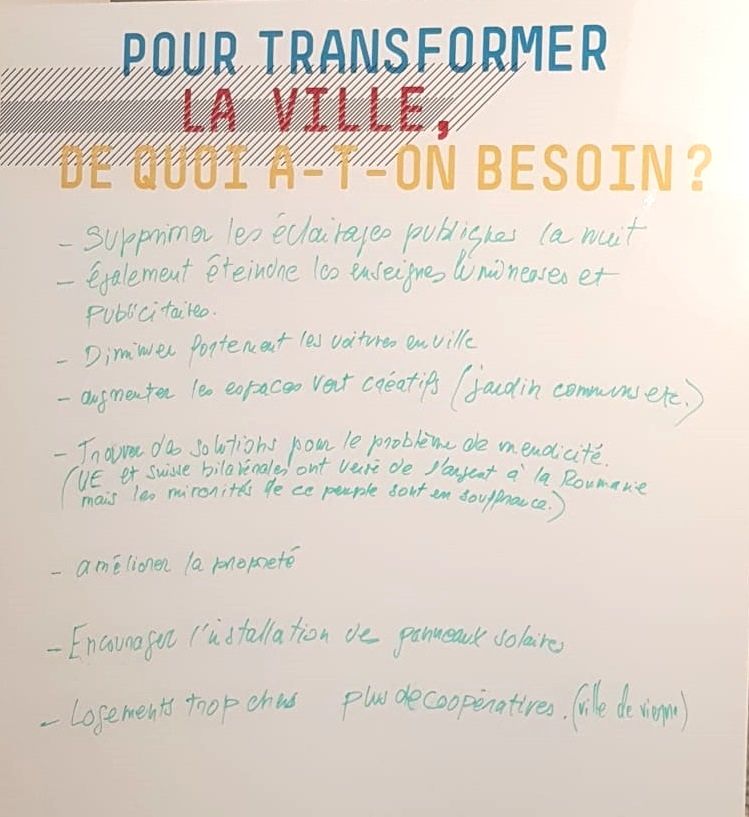 POUR TRANSFORMER
LA VILLE,
DE QUOI A-T-ON BESOIN ?
- Supprimer les éclairages publiques la nuit
- également éteindre les enseignes lumineuses et
publicitaires.
- Diminuer fortement les voitures en ville
- augmenter les espaces vert créatifs (jardin communs etc.)
- Trouver des solutions pour le problème de mendicité.
(UE et Suisse bilatérales ont versé de l'argent à la Roumanie
mais les minorités de ce peuple sont en souffrance.)
- améliorer la propreté
- Encourager l'installation de panneaux solaires
- Logements trop chers plus de coopératives. (ville de vienne)